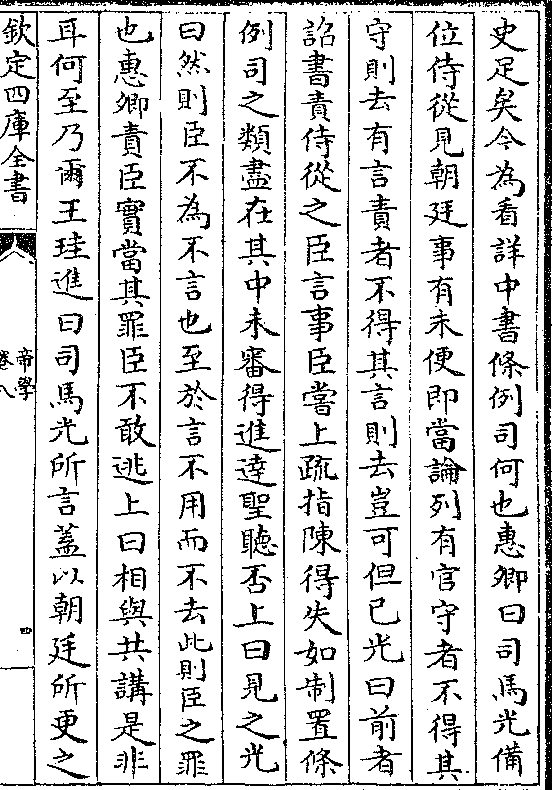 史足矣今為看詳中書條例司何也惠卿曰司馬光備
位侍從見朝廷事有未便即當論列有官守者不得其
守則去有言責者不得其言則去豈可但已光曰前者
詔書責侍從之臣言事臣嘗上疏指陳得失如制置條
例司之類盡在其中未審得進達聖聽否上曰見之光
曰然則臣不為不言也至於言不用而不去此則臣之罪
也惠卿責臣實當其罪臣不敢逃上曰相與共講是非
耳何至乃爾王珪進曰司馬光所言蓋以朝廷所更之
欽定四庫全書
帝學
卷八
四